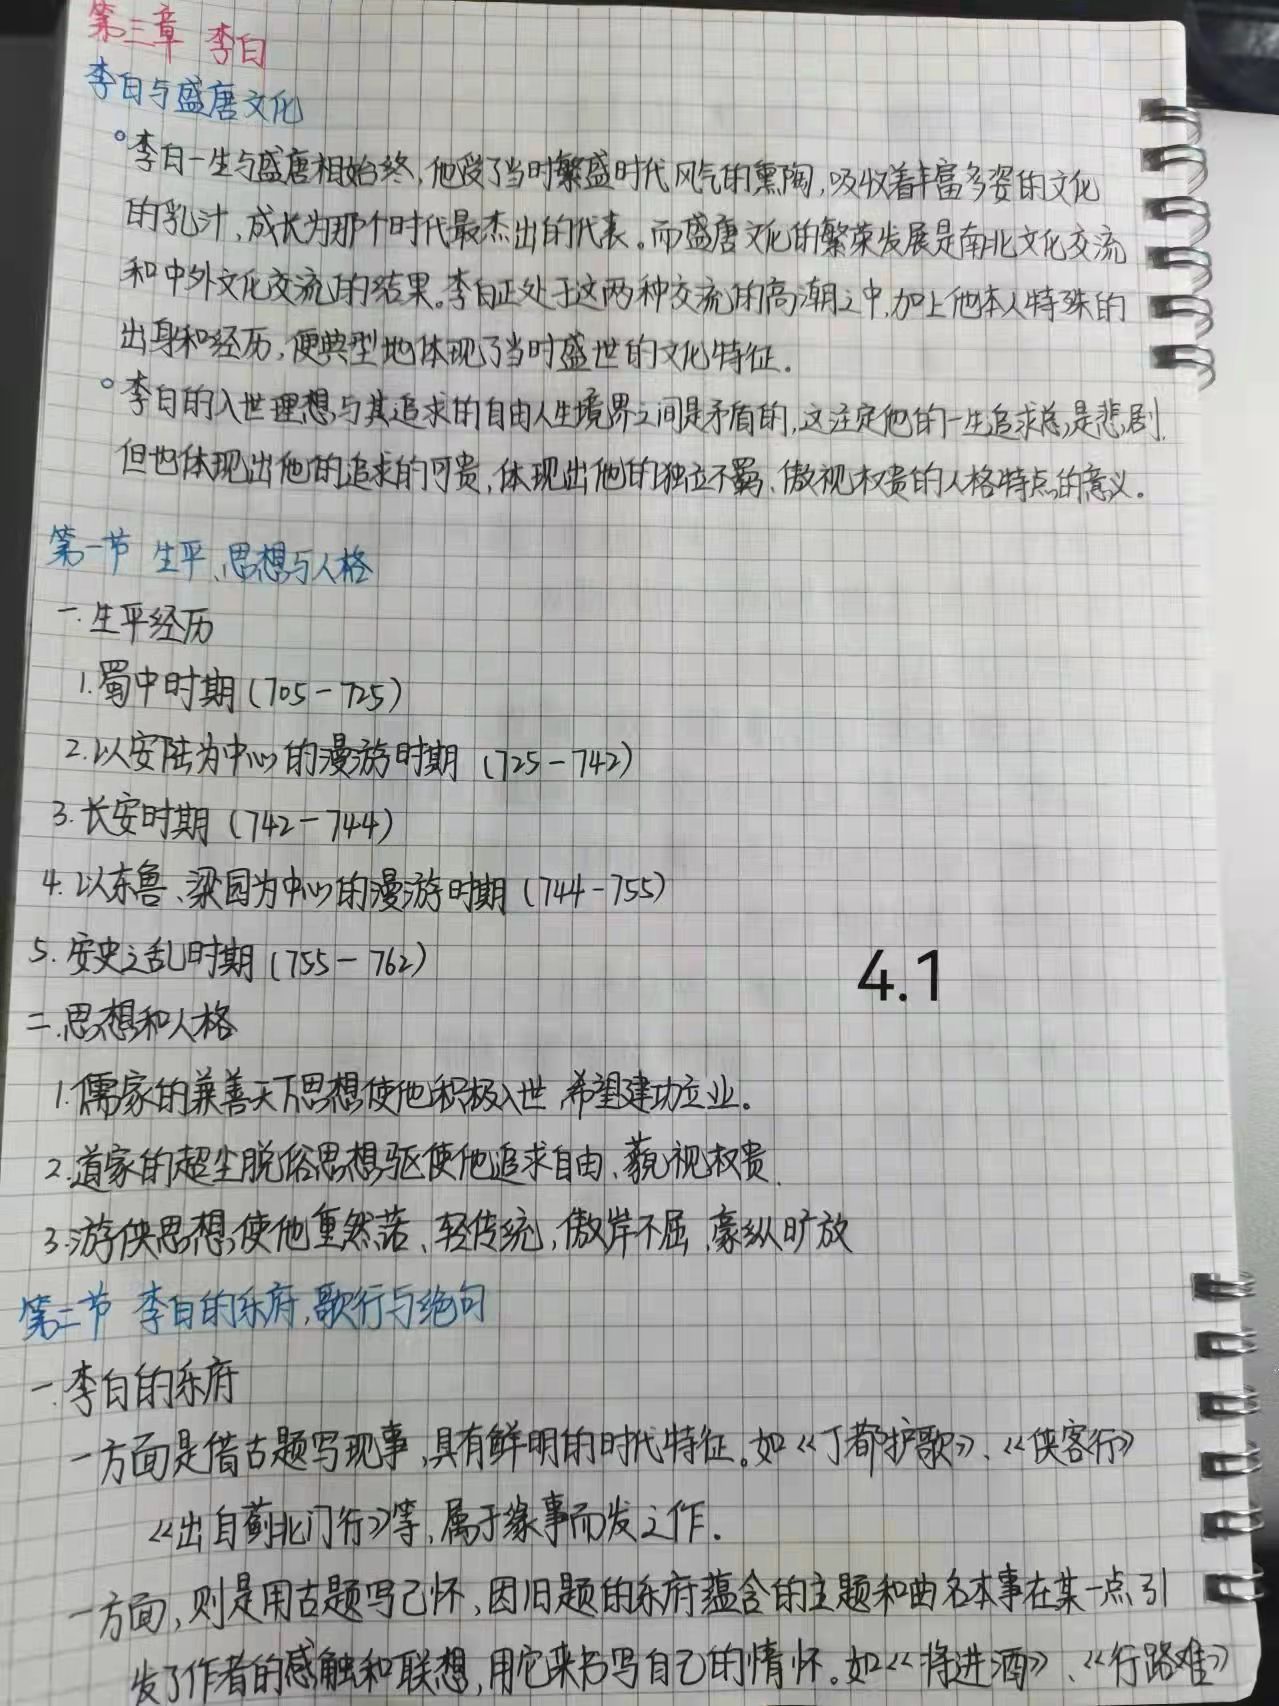 第三章 李白
李白与盛唐文化
。李白一生与盛唐相始终，他受了当时繁盛时代风气的熏陶，吸收着丰富多姿的文化
的乳汁，成长为那个时代最杰出的代表。而盛唐文化的繁荣发展是南北文化交流
和中外文化交流的结果。李白正处于这两种交流的高潮之中，加上他本人特殊的
出身和经历，便典型地体现了当时盛世的文化特征。
。李白的入世理想与其追求的自由人生境界之间是矛盾的，这注定他的一生追求总是悲剧，
但也体现出他的追求的可贵，体现出他的独立不羁、傲视权贵的人格特点的意义。
第一节 生平、思想与人格
一.生平经历
1.蜀中时期（705-725）
2.以安陆为中心的漫游时期（725-742）
3.长安时期（742-744）
4.以东鲁、梁园为中心的漫游时期（744-755）
5.安史之乱时期（755-762）
4.1
二.思想和人格
1.儒家的兼善天下思想使他积极入世，希望建功立业。
2.道家的超尘脱俗思想驱使他追求自由、藐视权贵.
3.游侠思想使他重然诺、轻传统，傲岸不屈、豪纵旷放
第二节 李白的乐府，歌行与绝句
一.李白的乐府
一方面是借古题写现事，具有鲜明的时代特征。如《丁都护歌》、《侠客行》
《出自蓟北门行》等，属于缘事而发之作.
一方面，则是用古题写己怀，因旧题的乐府蕴含的主题和曲名本事在某一点引
发了作者的感触和联想，用它来书写自己的情怀。如《将进酒》、《行路难》